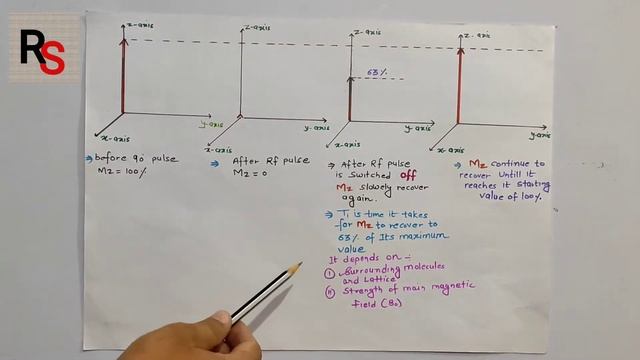 RS
z-axis
y-axis
x-axis
z-axis
y-axis
x-axis
z-axis
63%
y-axis
x-axis
z-axis
y-axis
x-axis
⇒ before 90° pulse
Mz = 100%
⇒ After Rf pulse
Mz = 0
⇒ After Rf pulse
is switched off
Mz slowely recover
again.
⇒ T1 is time it takes
for Mz to recover to
63% of Its maximum
value
It depends on :-
(I) Surrounding molecules
and Lattice
(II) Strength of main magnetic
field (B0)
⇒ Mz continue to
recover Untill it
reaches it starting
value of 100%.